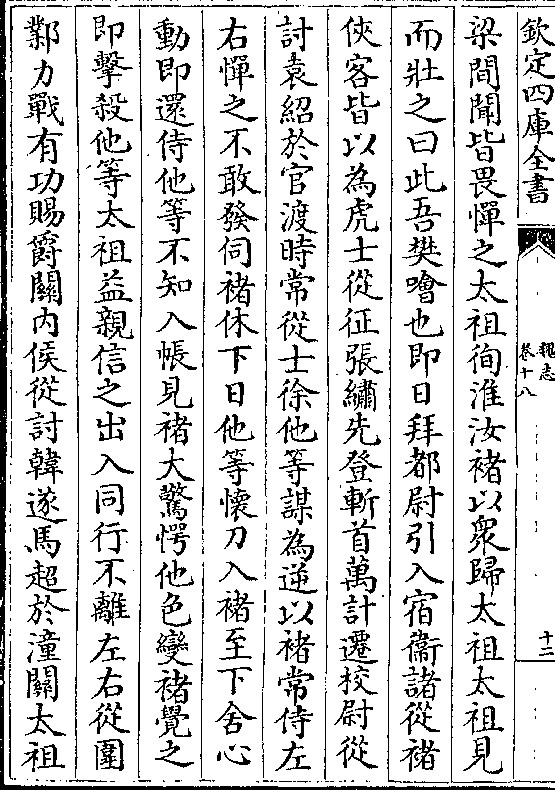 欽定四庫全書
魏志
卷十八
十二
梁間聞皆畏憚之太祖徇淮汝褚以衆歸太祖太祖見
而壯之曰此吾樊噲也即日拜都尉引入宿衞諸從褚
俠客皆以為虎士從征張繡先登斬首萬計遷校尉從
討袁紹於官渡時常從士徐他等謀為逆以褚常侍左
右憚之不敢發伺褚休下日他等懷刀入褚至下舍心
動即還侍他等不知入帳見褚大驚愕他色變褚覺之
即擊殺他等太祖益親信之出入同行不離左右從圍
鄴力戰有功賜爵關内侯從討韓遂馬超於潼關太祖